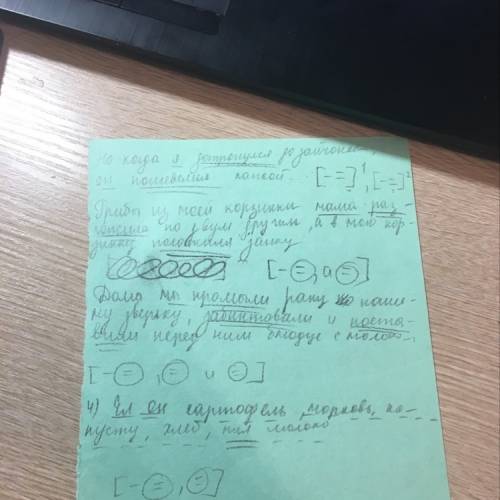 Но когда я дотронулся до зайчонка,
он пошевелил лапкой. [- =]¹, [- =]²
Грибы из моей корзинки мама раз-
ложила по двум другим, а в мою кор-
зинку положила зайку
[- =, а =]
Дома мы промыли рану наше-
му зверьку, забинтовали и поста-
вили перед ним блюдце с молоко
[- =, = и =]
4) Ел он картофель, морковь, ка-
пусту, хлеб, пил молоко
[- =, =]